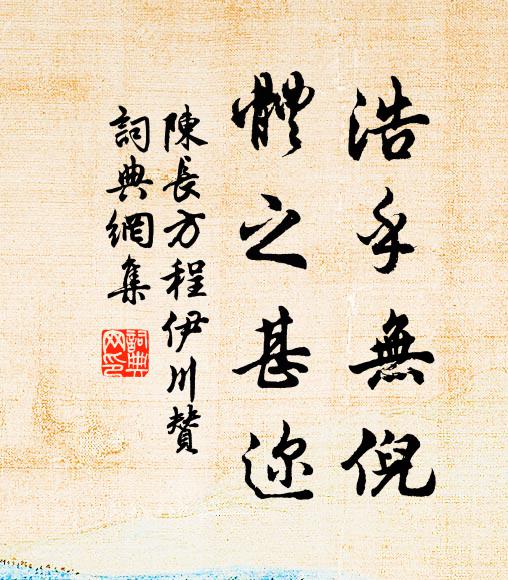 浩乎無倪
體之甚迩
陳長方程伊川贊
詞典網集
詞典
网印